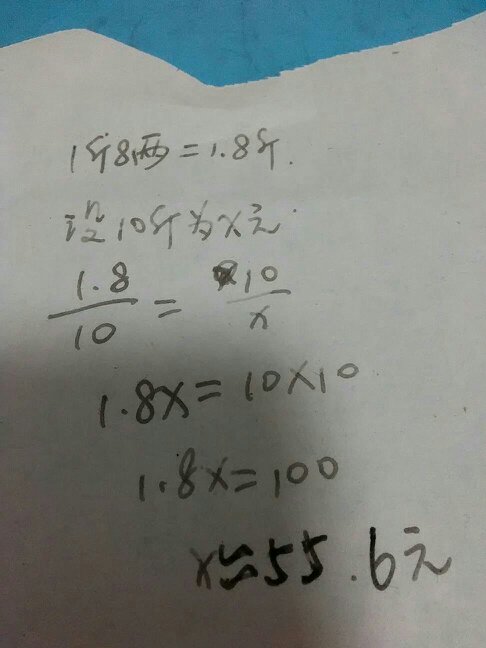 1斤8两=1.8斤.
设10斤为x元.
1.8/10 = 10/x
1.8x=10×10
1.8x=100
x≈55.6元